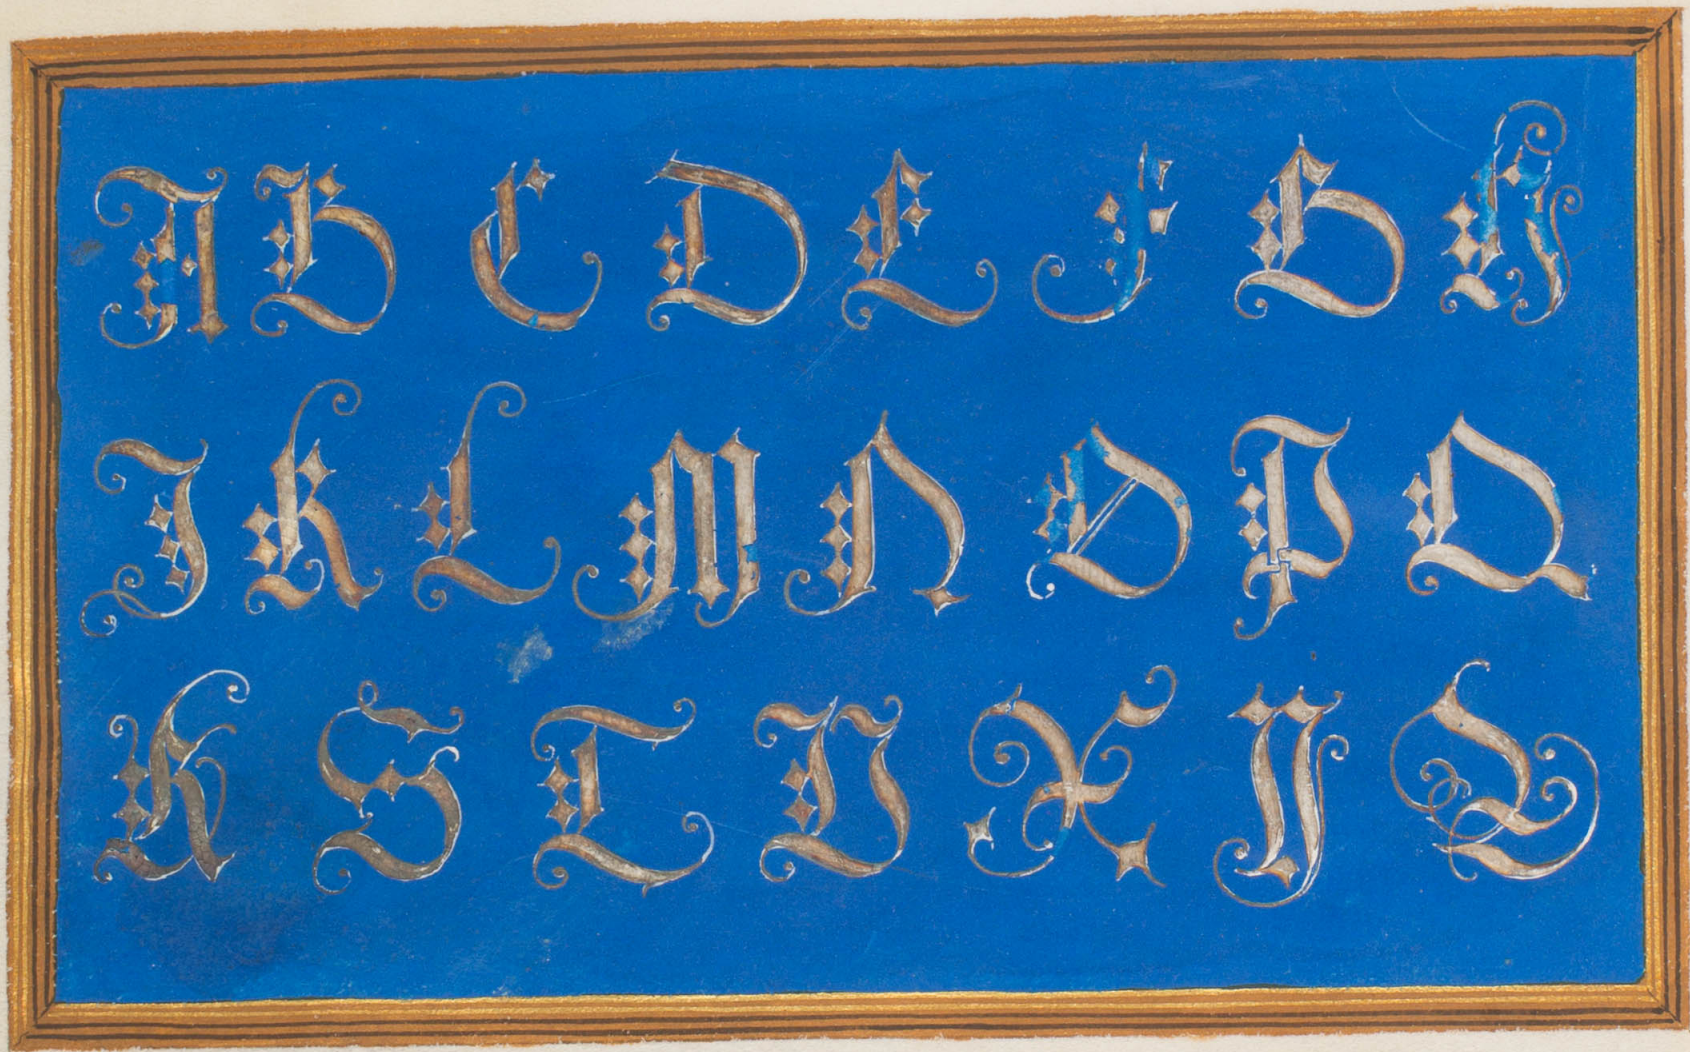 A B C D E F G H
I K L M N O P Q
R S T V X Y Z